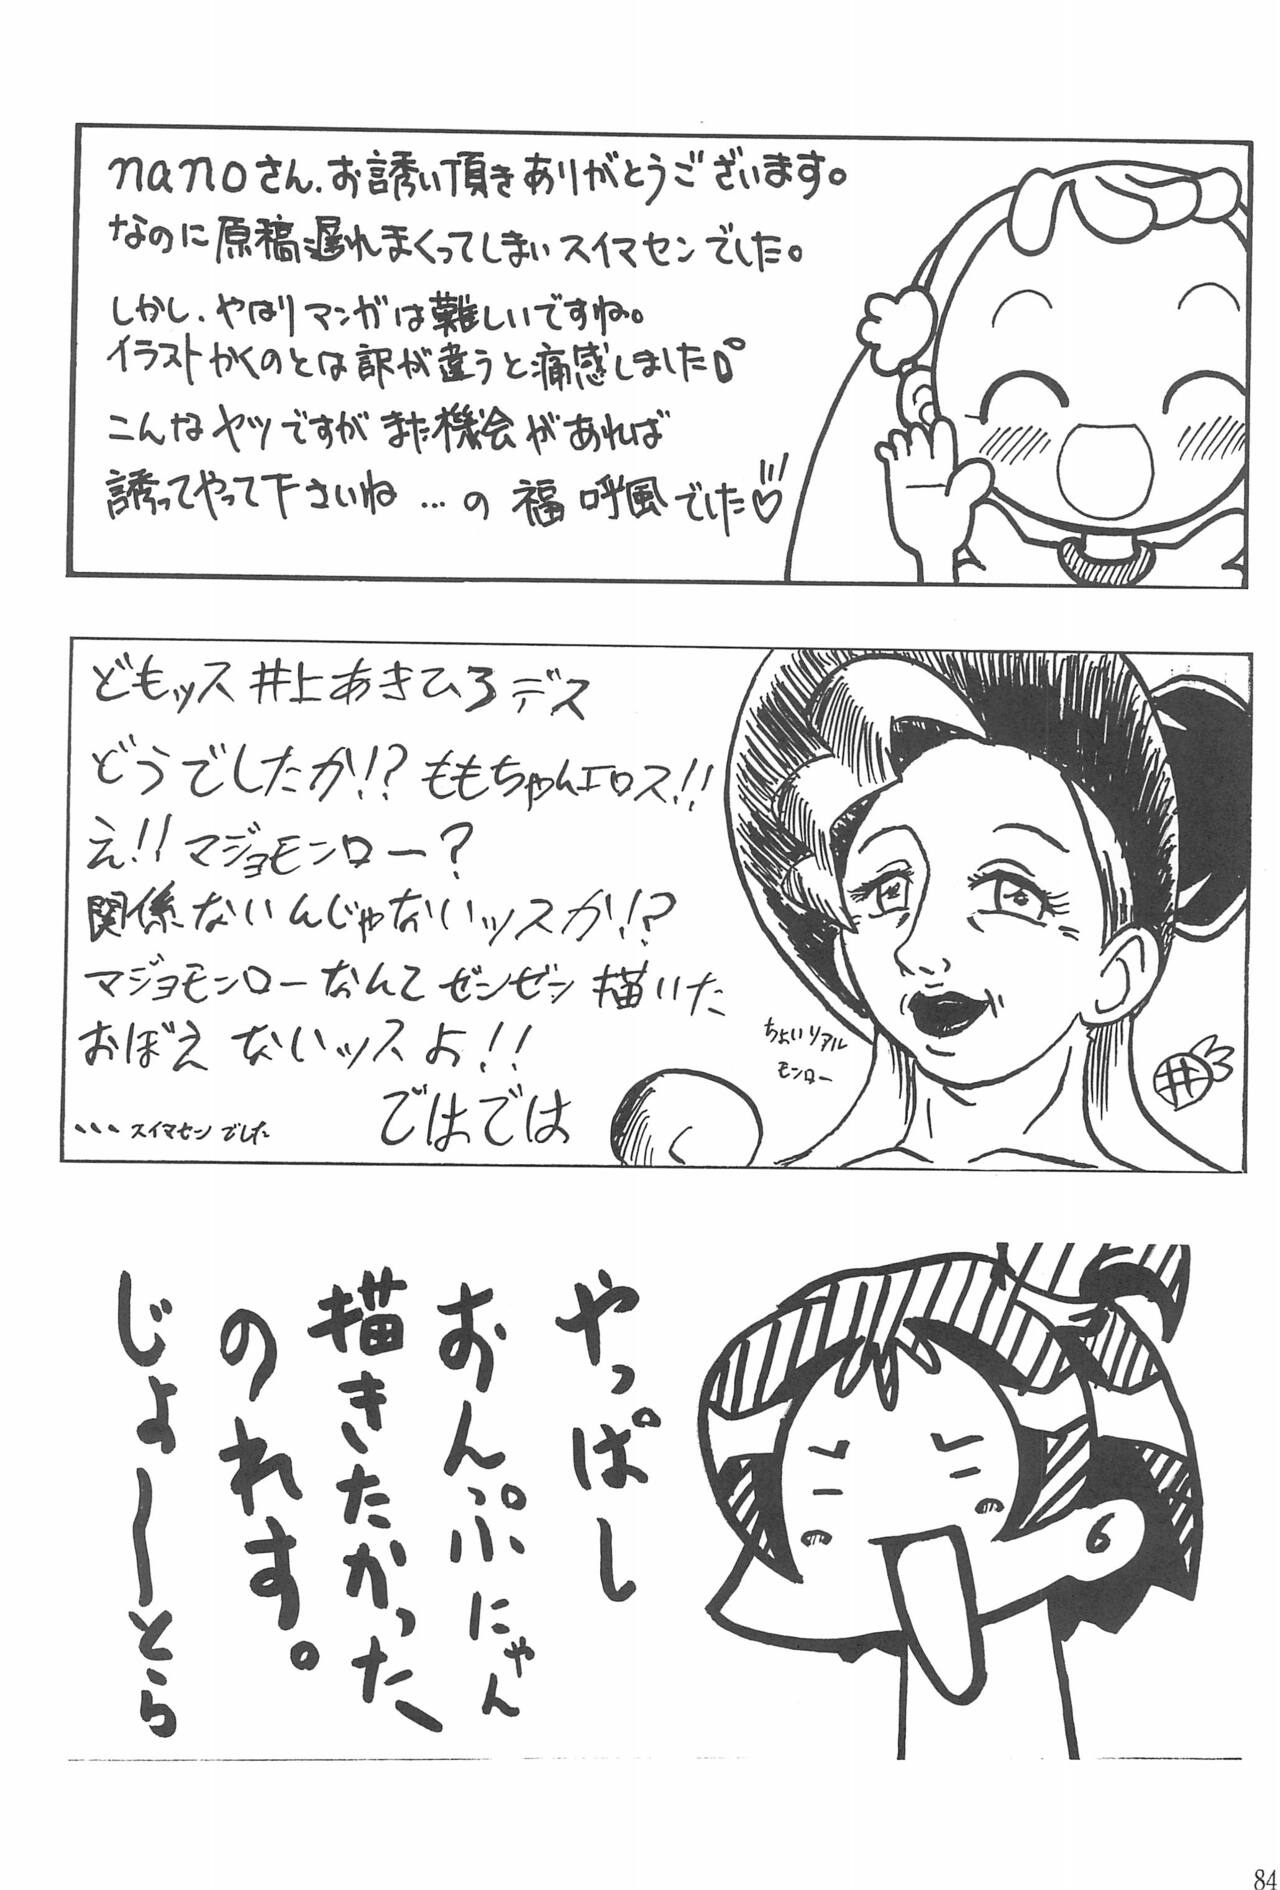 nanoさん、お誘い頂きありがとうございます。
なのに原稿遅れまくってしまいスイマセンでした。
しかし、やはりマンガは難しいですね。
イラストかくのとは訳が違うと痛感しました
こんなヤツですがまた機会があれば
誘ってやって下さいね …の 福 呼風でした♡
どもッス 井上あきひろデス
どうでしたか!? ももちゃんエロス!!
え!! マジョモンロー?
関係ないんじゃないッスか!?
マジョモンローなんてゼンゼン描いた
おぼえ ないッスよ!!
ではでは
、、、スイマセンでした
ちょいリアル
モンロー
井
やっぱし
おんぷにゃん
描きたかった
のれす。
じょーとら
84